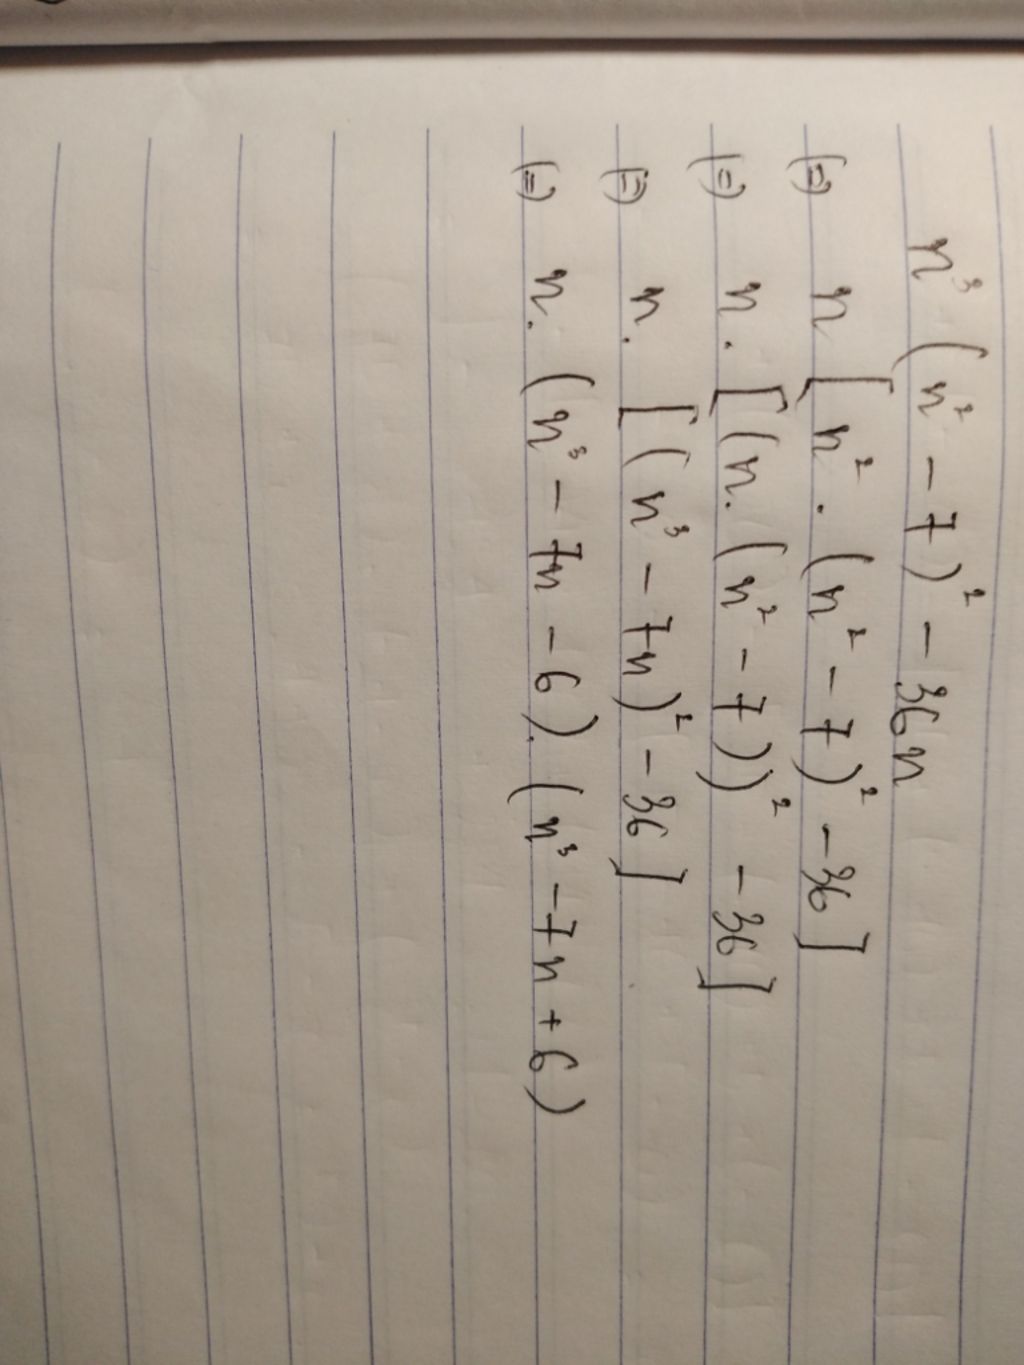 n³ (n² - 7)² - 36n
(=) n [n² . (n² - 7)² - 36]
(=) n . [(n. (n² - 7))² - 36]
(=) n. [(n³ - 7n)² - 36]
(=) n. (n³ - 7n - 6). (n³ - 7n + 6)